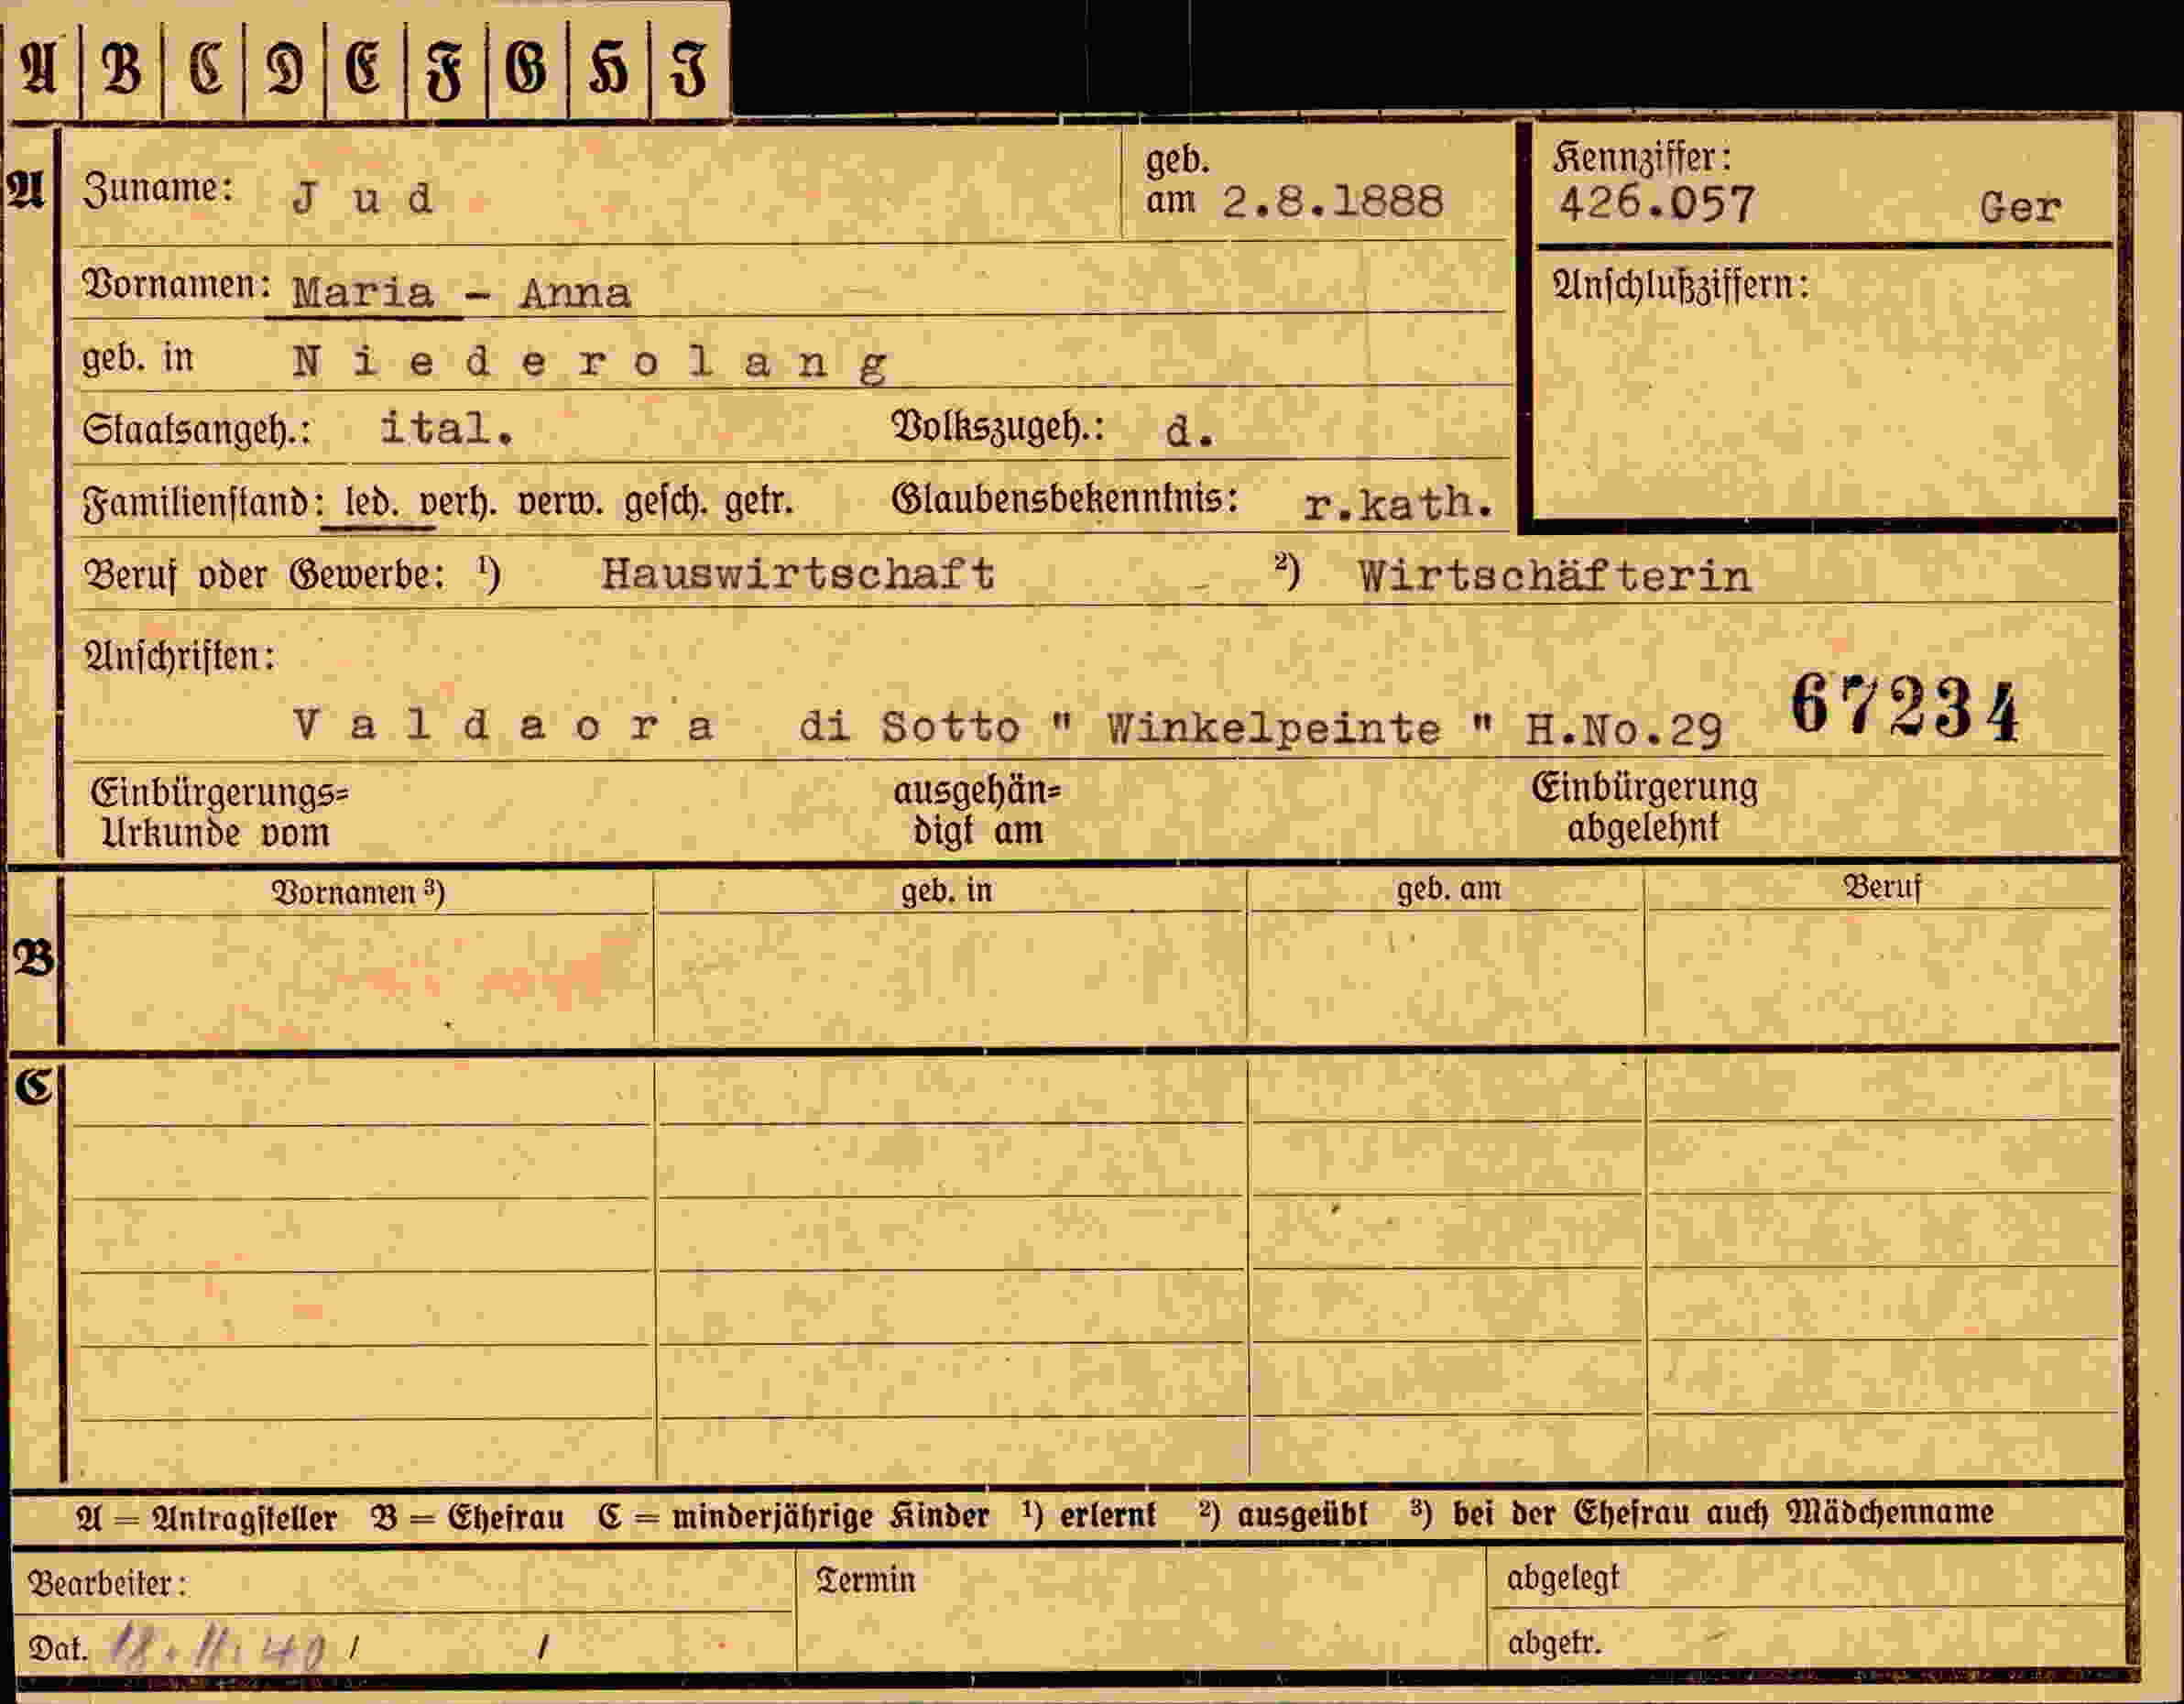 A B C D E F G H I
A Zuname: Jud geb. am 2.8.1888 Kennziffer: 426.057 Ger
Vornamen: Maria - Anna Anschlußziffern:
geb. in Niederolang
Staatsangeh.: ital. Volkszugeh.: d.
Familienstand: led. verh. verw. gesch. getr. Glaubensbekenntnis: r.kath.
Beruf oder Gewerbe: ¹) Hauswirtschaft ²) Wirtschäfterin
Anschriften:
Valdaora di Sotto " Winkelpeinte " H.No.29 67234
Einbürgerungs= ausgehän= Einbürgerung
Urkunde vom digt am abgelehnt
Vornamen ³) geb. in geb. am Beruf
B
C
A = Antragsteller B = Ehefrau C = minderjährige Kinder ¹) erlernt ²) ausgeübt ³) bei der Ehefrau auch Mädchenname
Bearbeiter: Termin abgelegt
Dat. 18.11.40 / / abgetr.